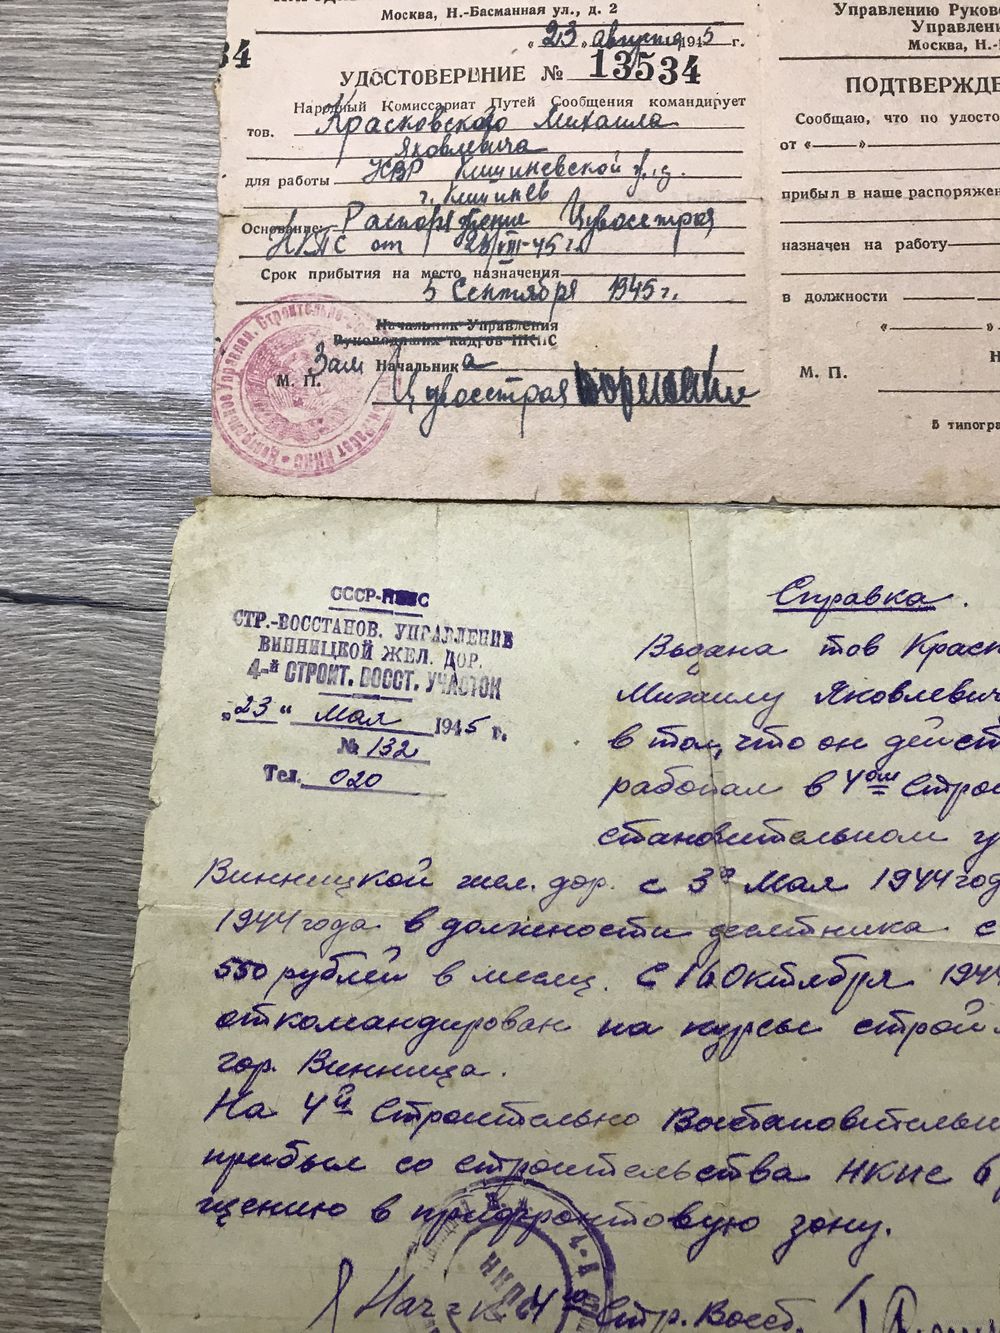 Москва, Н.-Басманная ул., д. 2
«23» августа 1945 г.
34
УДОСТОВЕРЕНИЕ № 13534
Народный Комиссариат Путей Сообщения командирует
тов. Красковского Михаила
Яковлевича
для работы НВР Кишиневской ж.д.
г. Кишинев
Основание: Распоряжение Цувосстроя
НКПС от 23/VIII-45 г.
Срок прибытия на место назначения
5 Сентября 1945 г.
Начальник Управления
Руководящих кадров НКПС
Зам Начальника
М. П.
Цувосстроя
Управлению Руково
Управлени
Москва, Н.-
ПОДТВЕРЖДЕ
Сообщаю, что по удосто
от «—»
прибыл в наше распоряжен
назначен на работу
в должности
« »
Н
М. П.
В типогра
СССР-НКПС
СТР.-ВОССТАНОВ. УПРАВЛЕНИЕ
ВИННИЦКОЙ ЖЕЛ. ДОР.
4-й СТРОИТ. ВОССТ. УЧАСТОК
„23" Мая 1945 г.
№ 132
Тел. 020
Справка.
Выдана тов Краск
Михаилу Яковлевич
в том, что он дейст
работал в 4ом Строи
становительном у
Винницкой жел. дор. с 3го Мая 1944 год
1944 года в должности десятника с
550 рублей в месяц. С 16 Октября 1944
откомандирован на курсы строй
гор. Винница.
На 4й Строительно Востановительн
прибыл со строительства НКПС
щению в прифронтовую зону.
Нач-к 4го Стр. Восст.